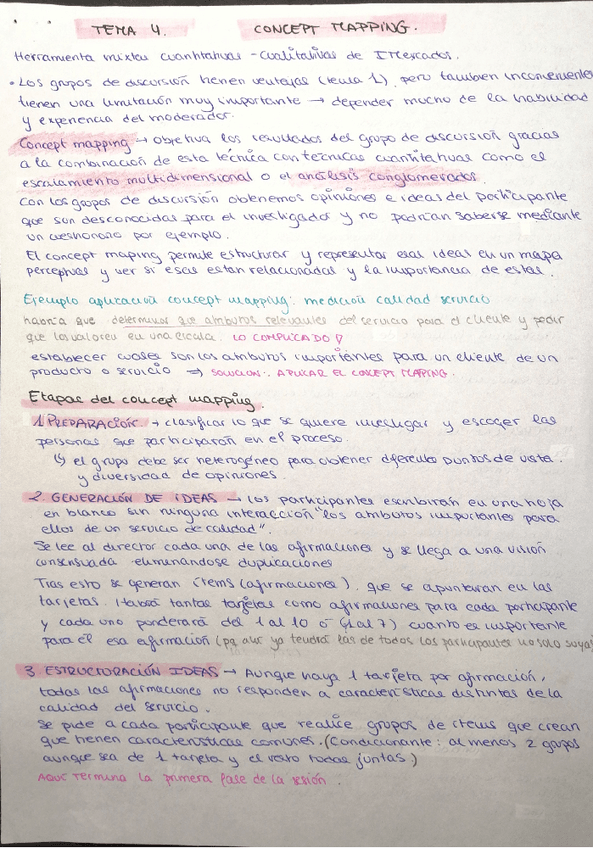 TEMA 4. CONCEPT MAPPING.
Herramienta mixta cuantitativas - cualitativas de IMercados.
• Los grupos de discusión tienen ventajas (tema 1), pero también inconvenientes
tienen una limitación muy importante → depender mucho de la habilidad
y experiencia del moderador.
Concept mapping → objetiva los resultados del grupo de discusión gracias
a la combinación de esta técnica con técnicas cuantitativas como el
escalamiento multidimensional o el análisis conglomerados.
Con los grupos de discusión obtenemos opiniones e ideas del participante
que son desconocidas para el investigador y no podrían saberse mediante
un cuestionario por ejemplo.
El concept maping permite estructurar y representar esas ideas en un mapa
perceptual y ver si esas estan relacionadas y la importancia de estas.
Ejemplo aplicación concept mapping: medición calidad servicio
habría que determinar que atributos relevantes del servicio para el cliente y pedir
que los valoren en una escala. LO COMPLICADO
establecer cuales son los atributos importantes para un cliente de un
producto o servicio ⇒ SOLUCION: APLICAR EL CONCEPT MAPPING.
Etapas del concept mapping.
1. PREPARACIÓN. → clasificar lo que se quiere investigar y escoger las
personas que participaran en el proceso.
↳ el grupo debe ser heterogéneo para obtener diferentes puntos de vista
y diversidad de opiniones.
2. GENERACIÓN DE IDEAS → los participantes escribirán en una hoja
en blanco sin ninguna interacción "los atributos importantes para
ellos de un servicio de calidad".
Se lee al director cada una de las afirmaciones y se llega a una visión
consensuada eliminandose duplicaciones
Tras esto se generan ítems (afirmaciones), que se apuntaran en las
tarjetas. Habrá tantas tarjetas como afirmaciones para cada participante
y cada uno ponderará del 1 al 10 ó (1 al 7) cuanto es importante
para él esa afirmación (pq aquí ya tendrá las de todos los participantes no solo suya)
3 ESTRUCTURACIÓN IDEAS → Aunque haya 1 tarjeta por afirmación,
todas las afirmaciones no responden a características distintas de la
calidad del servicio.
Se pide a cada participante que realice grupos de items que crean
que tienen características comunes. (Condicionante: al menos 2 grupos
aunque sea de 1 tarjeta y el resto todas juntas)
AQUÍ TERMINA la primera fase de la sesión.